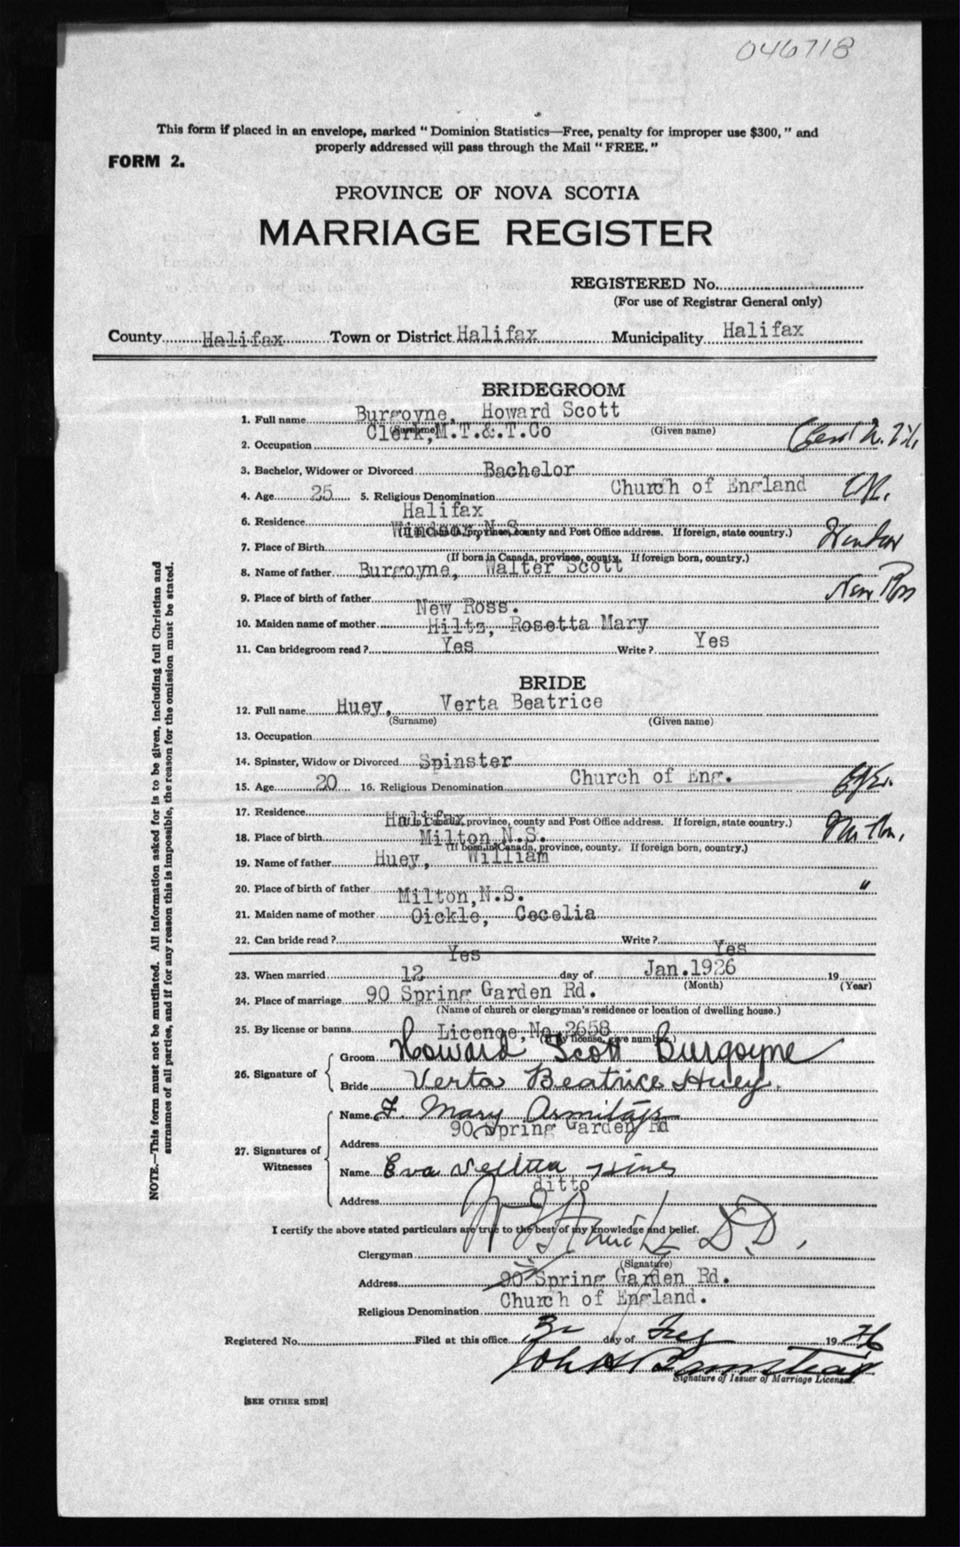 046718
This form if placed in an envelope, marked "Dominion Statistics—Free, penalty for improper use $300," and
properly addressed will pass through the Mail "FREE."
FORM 2.
PROVINCE OF NOVA SCOTIA
MARRIAGE REGISTER
REGISTERED No.
(For use of Registrar General only)
County Halifax Town or District Halifax Municipality Halifax
BRIDEGROOM
1. Full name Burgoyne, Howard Scott
(Surname) (Given name)
2. Occupation Clerk, M.T.&.T.Co
3. Bachelor, Widower or Divorced Bachelor
4. Age 25 5. Religious Denomination Church of England
6. Residence Halifax
(If in Canada, province, county and Post Office address. If foreign, state country.)
7. Place of Birth Windsor, N.S. Windsor
(If born in Canada, province, county. If foreign born, country.)
8. Name of father Burgoyne, Walter Scott
9. Place of birth of father New Ross. New Ross
10. Maiden name of mother Hiltz, Rosetta Mary
11. Can bridegroom read? Yes Write? Yes
BRIDE
12. Full name Huey, Verta Beatrice
(Surname) (Given name)
13. Occupation
14. Spinster, Widow or Divorced Spinster
15. Age 20 16. Religious Denomination Church of Eng.
17. Residence Halifax
(If in Canada, province, county and Post Office address. If foreign, state country.)
18. Place of birth Milton N.S. Milton,
(If born in Canada, province, county. If foreign born, country.)
19. Name of father Huey, William
20. Place of birth of father Milton, N.S. "
21. Maiden name of mother Oickle, Cecelia
22. Can bride read? Yes Write? Yes
23. When married 12 day of Jan. 1926 19
(Month) (Year)
24. Place of marriage 90 Spring Garden Rd.
(Name of church or clergyman's residence or location of dwelling house.)
25. By license or banns License, No. 2658
(If by license, give number.)
26. Signature of
Groom Howard Scott Burgoyne
Bride Verta Beatrice Huey.
27. Signatures of Witnesses
Name F. Mary Armitage
Address 90 Spring Garden Rd
Name Eva
Address ditto
I certify the above stated particulars are true to the best of my knowledge and belief.
Clergyman D.D.,
(Signature)
Address 90 Spring Garden Rd.
Religious Denomination Church of England.
Registered No. Filed at this office day of 19 26
Signature of Issuer of Marriage Licenses.
[SEE OTHER SIDE]
NOTE.—This form must not be mutilated. All information asked for is to be given, including full Christian and
surnames of all parties, and if for any reason this is impossible, the reason for the omission must be stated.